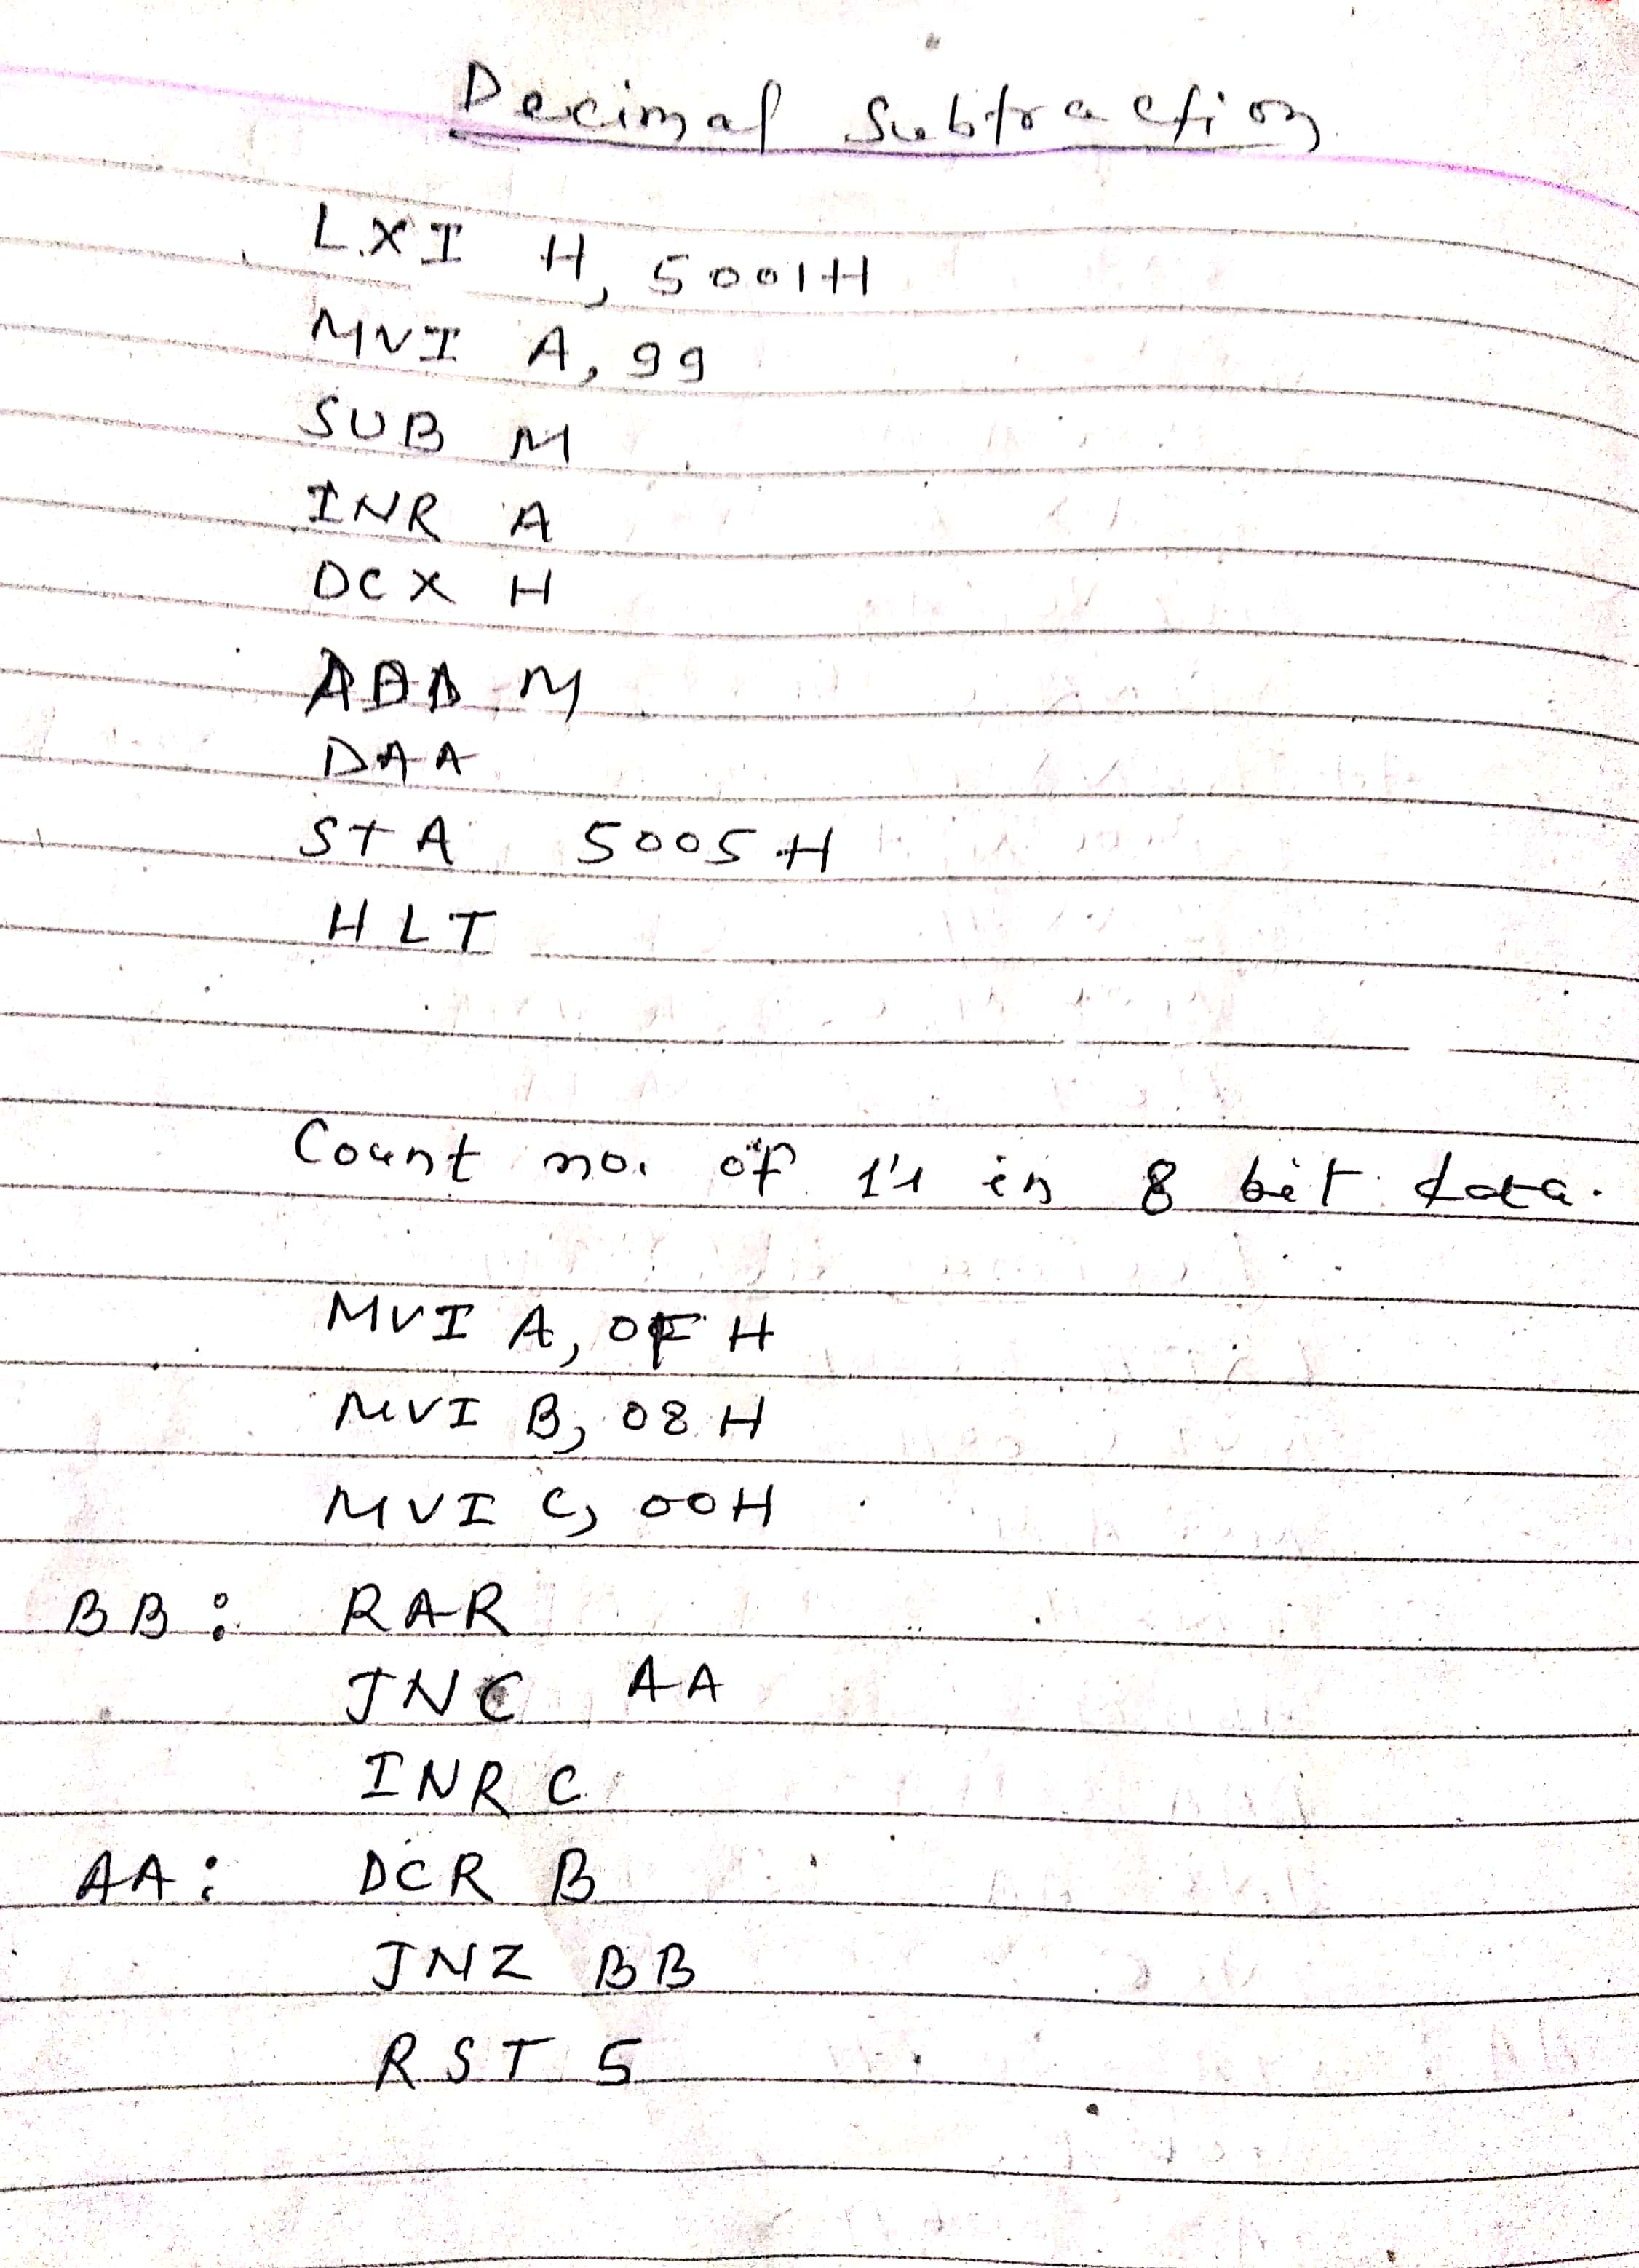 Decimal Subtraction
LXI H, 5001H
MVI A, 99
SUB M
INR A
DCX H
ADD M
DAA
STA 5005H
HLT
Count no. of 1's in 8 bit data.
MVI A, 0FH
MVI B, 08H
MVI C, 00H
BB: RAR
JNC AA
INR C
AA: DCR B
JNZ BB
RST 5